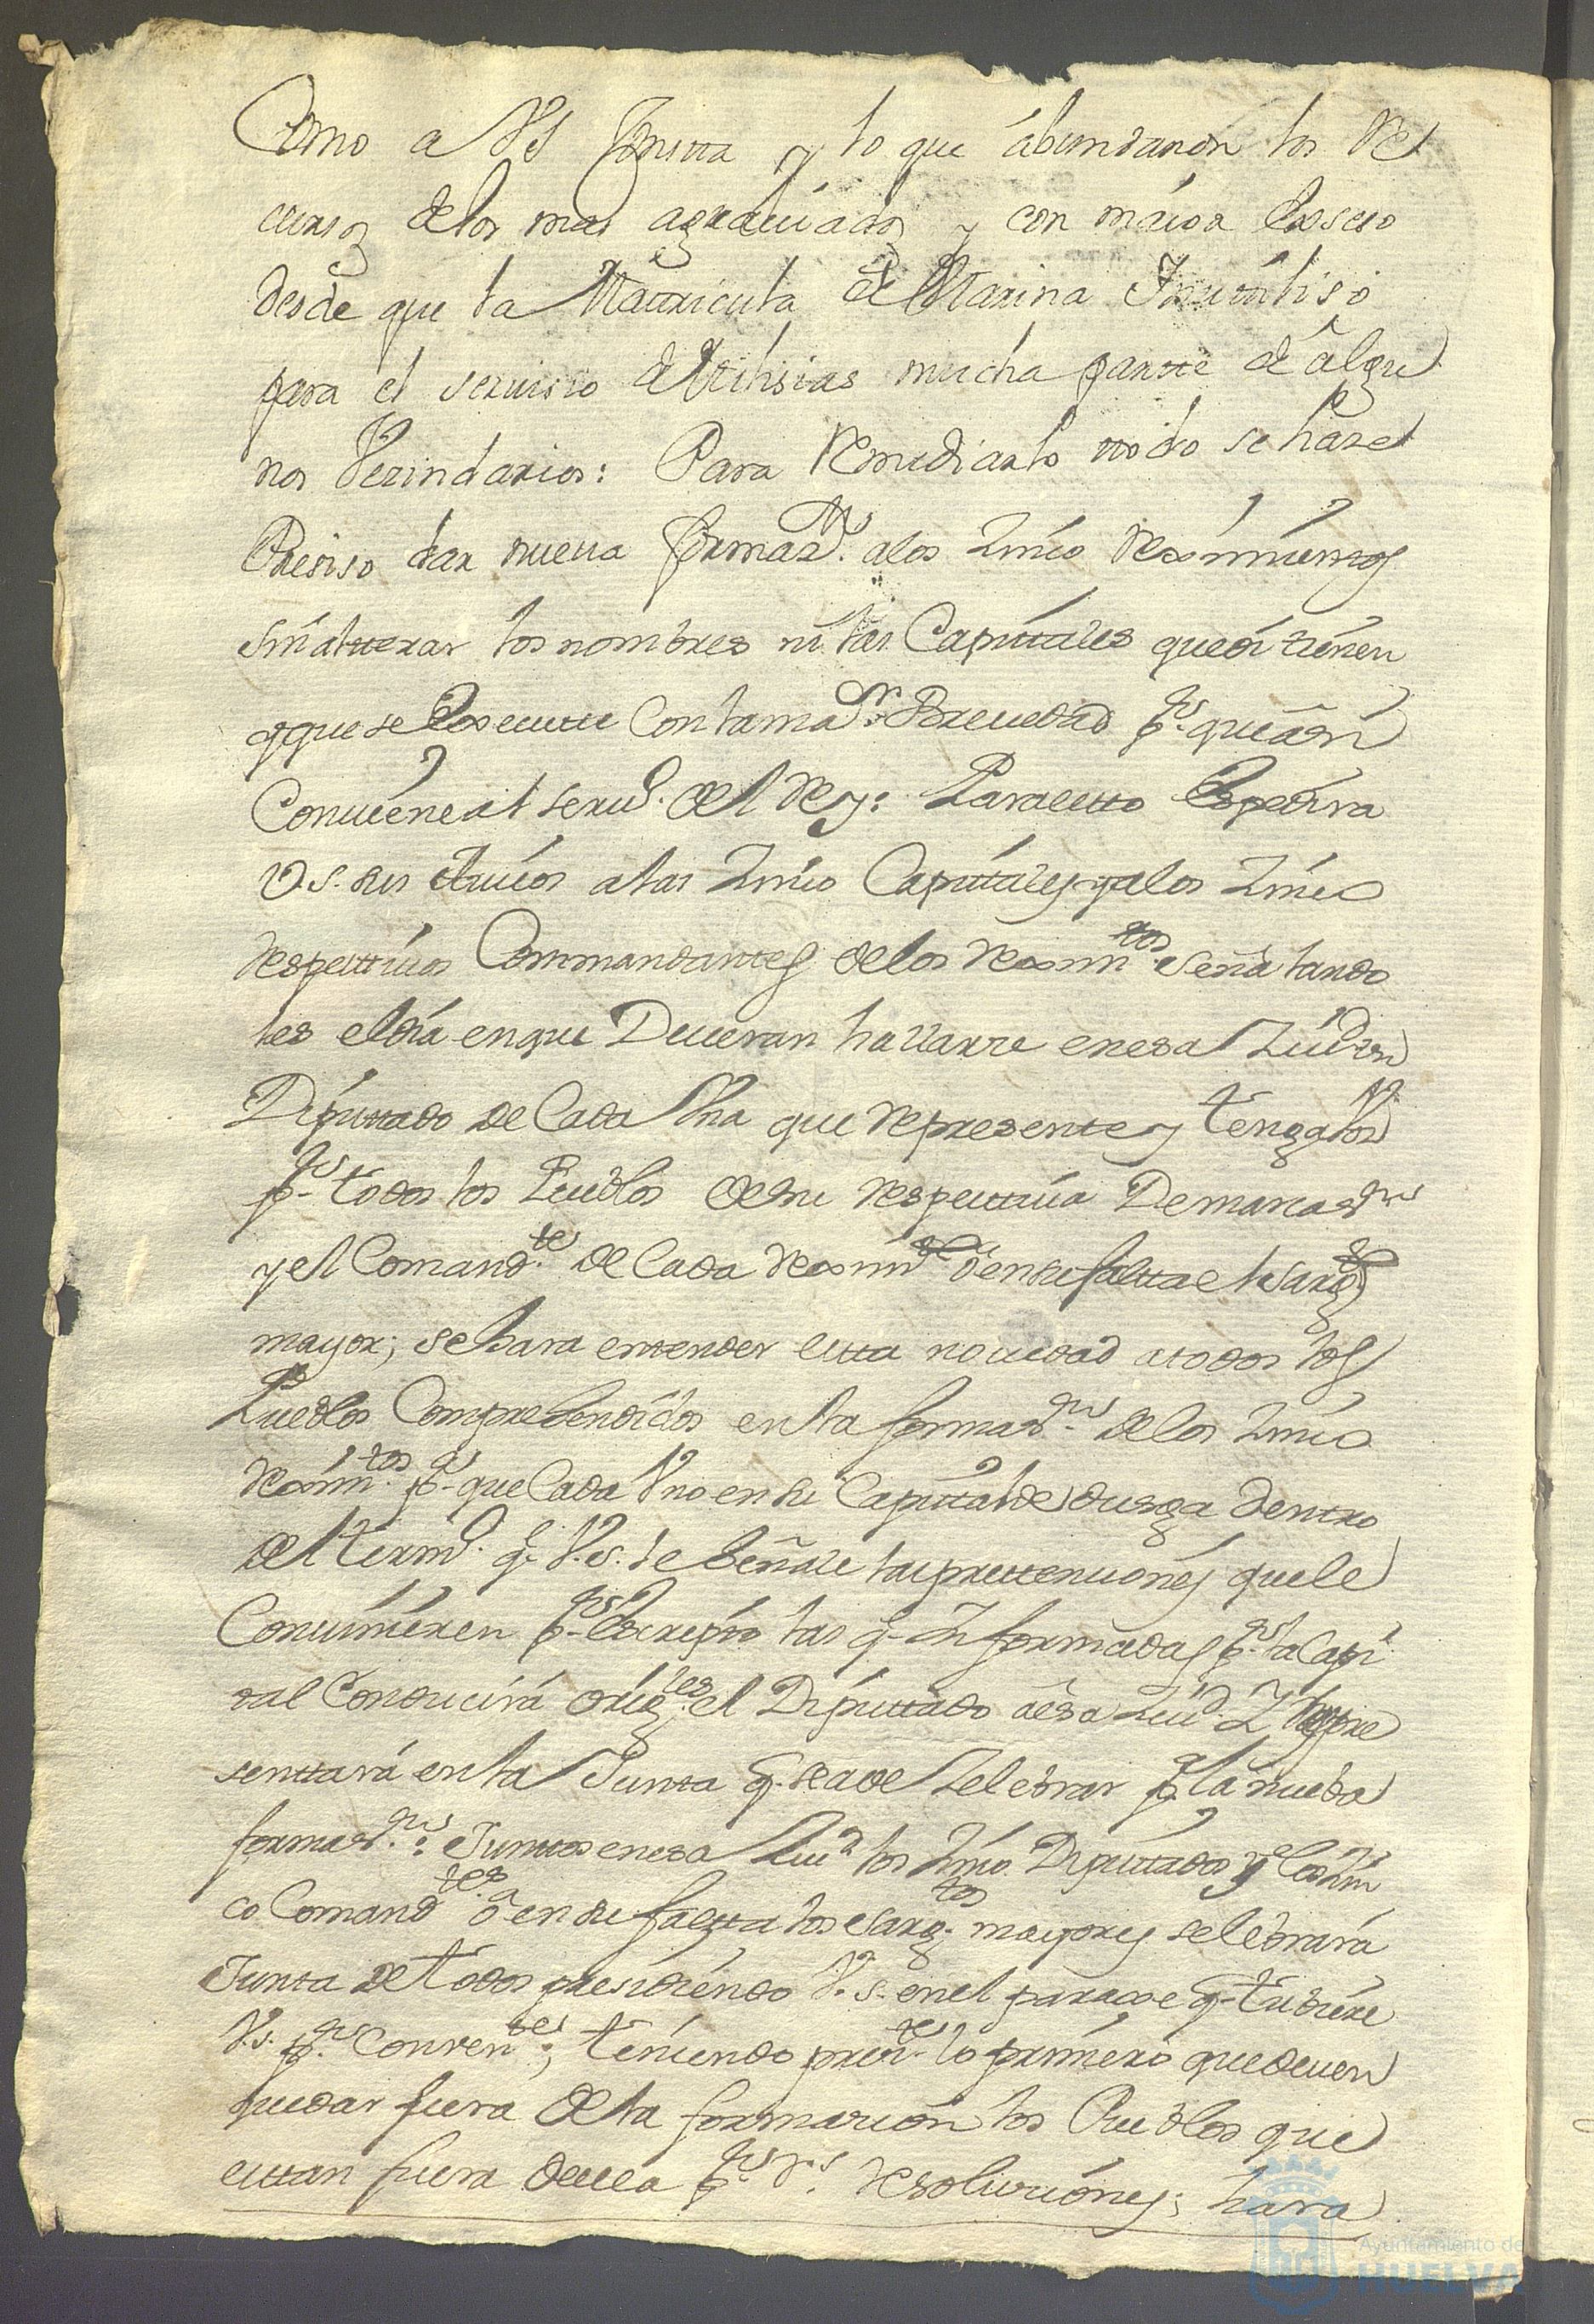 Como a VS Constta y lo que ábundanòn los Re
cursos delos mas agraliuiados y con máior Exseso
desde que la Mattricula de Marina Ynutiliso
para el seruisio de Milisias mucha partte de álgu
nos Vezindarios: Para Remediarlo ttodo se haze
Presiso dar nueua formaz.on alos Zinco Reximientos
sin altterar los nombres ni las Capittales que oi tienen
y que se Exsecutte Con la ma.or Breuedad p.a que asi
Conuiene al seru.o del Rey: Para estto Espedira
V.S. sus Auisos alas Zinco Capitales y alos Zinco
Respecttiuos Commandantes delos Reximtos señalando
les el dia en que Deueran hallarse en esa Ziud. un
Diputtado de Cada Vna que Represente y tenga la Vos
p.r todos los Pueblos de su Respecttiua Demarcaz.on
y el Comand.te de Cada Reximto ó en su faltta el Sargto
mayor; se hara entender estta nouedad a todos los
Pueblos Comprehendidos en la formaz.on delos Zinco
Reximtos p.a que Cada Vno en su Capital deduzga dentro
del term.o q.e V.S. le Señale las prettenciones que le
Conuinieren p.r Escripto las q.e Informadas p.r la Capi
tal Conducirá Orig.les el Diputtado á esa Ziud. Y Repre
senttará en la Junta q.e se a de Zelebrar p.a la nueba
formaz.on: Junttos en esa Ziud. los Zinco Diputados y los Zin
co Comand.tes ó en su faltta los Sarg.tos mayores se lebrará
Junta de todos presidiendo V.S. en el paraxe q.e tubiere
V.S. p.r Conven.te; teniendo pres.te lo primero que deuen
quedar fuera de la formacion los Pueblos que
esttan fuera de ella p.r R.s Resoluciones; hara
Ayuntamiento de
HUELVA